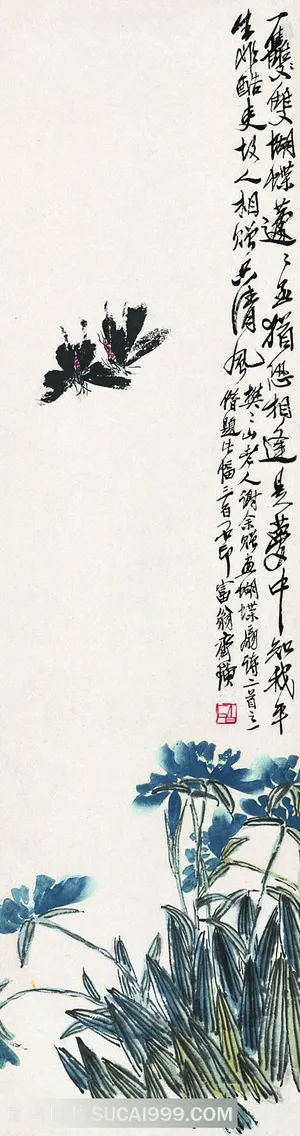 一雙雙蝴蝶蘧々丕猶恐相逢是夢中知我平
生非酷吏故人相贈只清風
樊々山老人謝余贈畫蝴蝶扇詩二首之一
借題此幅三百石印富翁齊璜
SUCAI999.COM